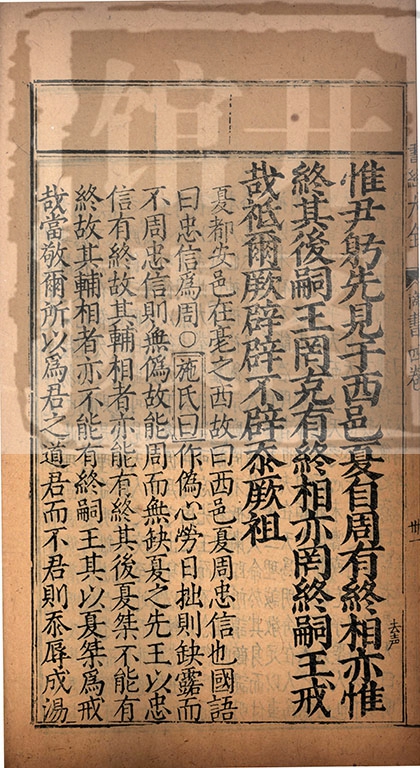 惟尹躬先見于西邑夏自周有終相亦惟
去聲
終其後嗣王罔克有終相亦罔終嗣王戒
哉祗爾厥辟辟不辟忝厥祖
夏都安邑在亳之西故曰西邑夏周忠信也國語
曰忠信爲周○施氏曰作偽心勞日拙則缺露而
不周忠信則無偽故能周而無缺夏之先王以忠
信有終故其輔相者亦能有終其後夏桀不能有
終故其輔相者亦不能有終嗣王其以夏桀爲戒
哉當敬爾所以爲君之道君而不君則忝辱成湯